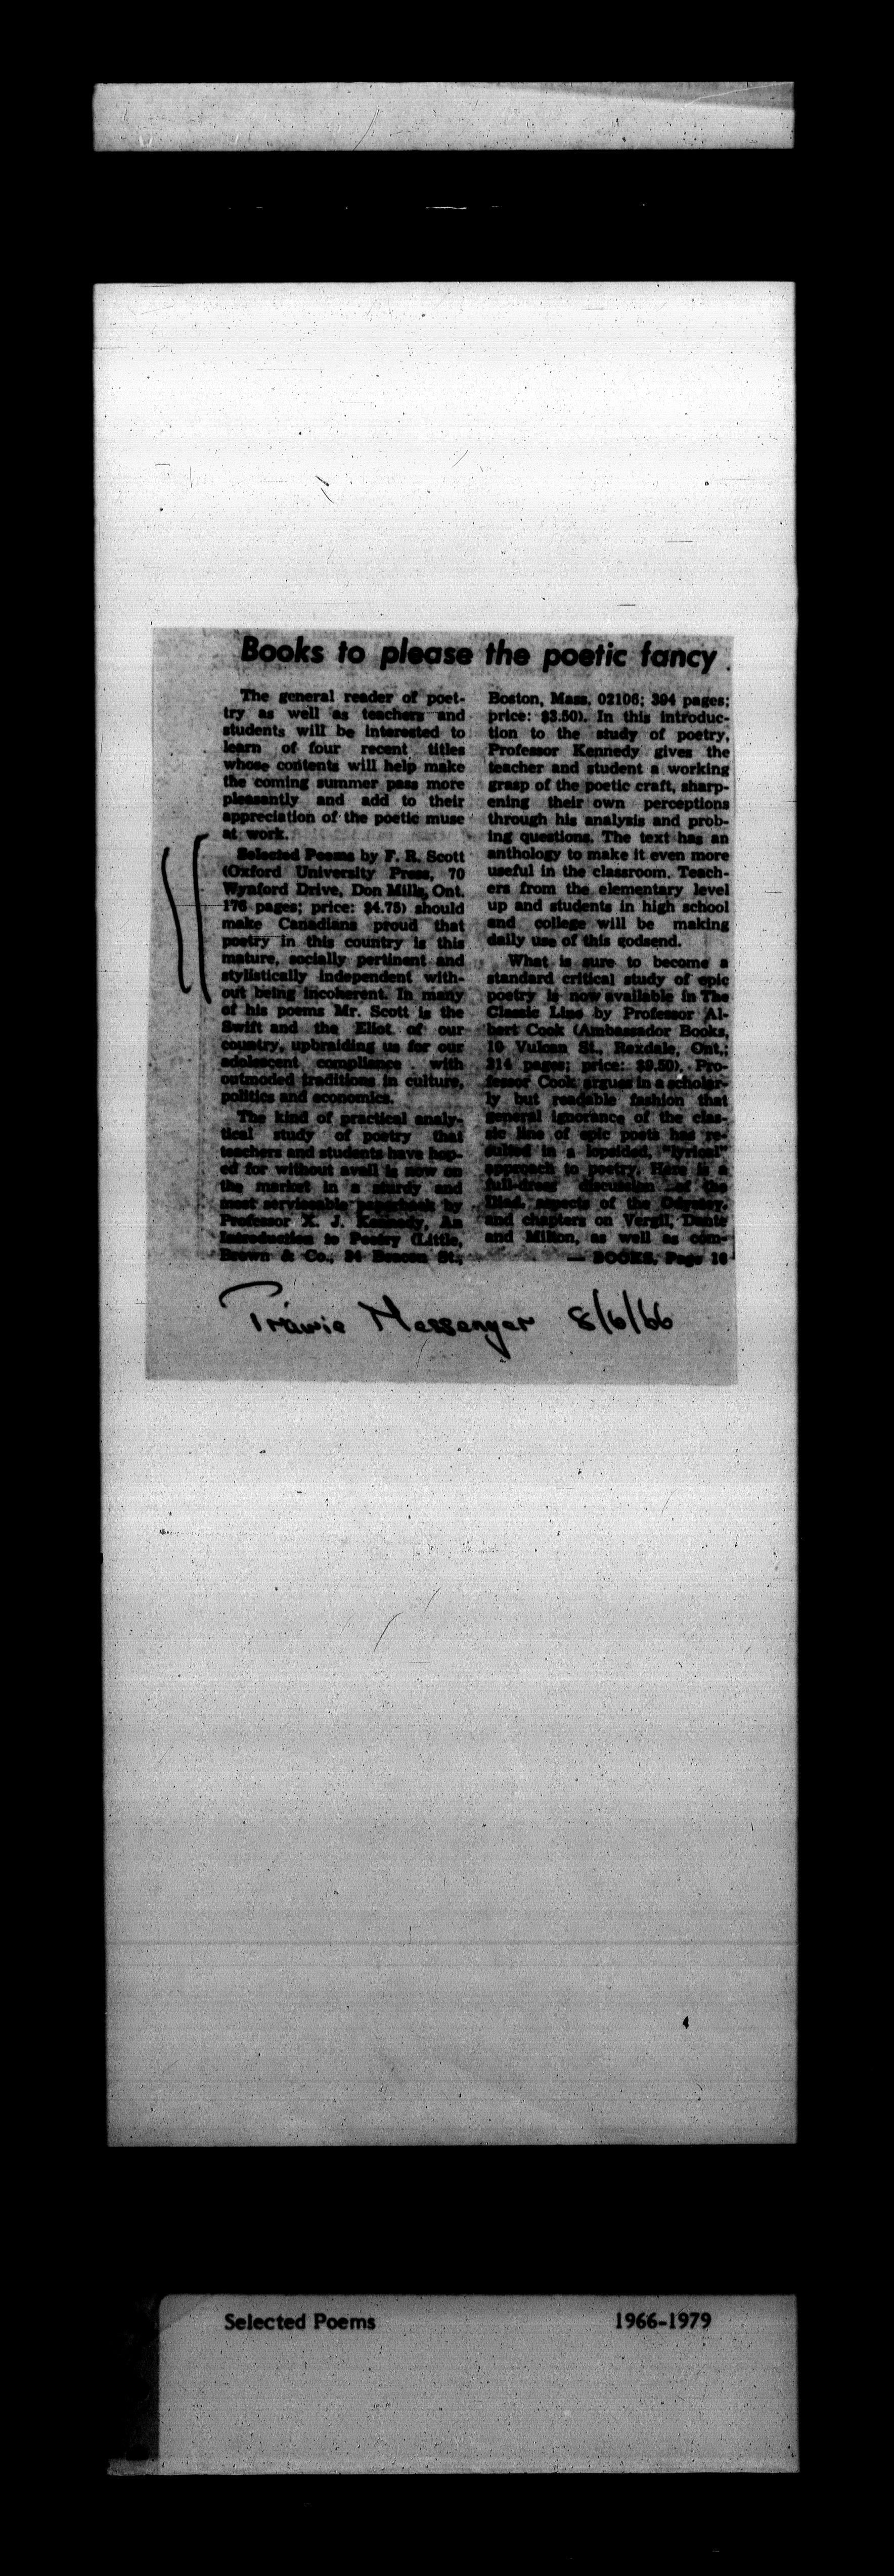 Books to please the poetic fancy
The general reader of poet-
try as well as teachers and
students will be interested to
learn of four recent titles
whose contents will help make
the coming summer pass more
pleasantly and add to their
appreciation of the poetic muse
at work.
Selected Poems by F. R. Scott
(Oxford University Press, 70
Wynford Drive, Don Mills, Ont.
176 pages; price: $4.75) should
make Canadians proud that
poetry in this country is this
mature, socially pertinent and
stylistically independent with-
out being incoherent. In many
of his poems Mr. Scott is the
Swift and the Eliot of our
country, upbraiding us for our
adolescent compliance with
outmoded traditions in culture,
politics and economics.
The kind of practical analy-
tical study of poetry that
teachers and students have hop-
ed for without avail is now on
the market in a sturdy and
most serviceable paperback by
Professor X. J. Kennedy, An
Introduction to Poetry (Little,
Brown & Co., 34 Beacon St.,
Boston, Mass. 02106; 394 pages;
price: $3.50). In this introduc-
tion to the study of poetry,
Professor Kennedy gives the
teacher and student a working
grasp of the poetic craft, sharp-
ening their own perceptions
through his analysis and prob-
ing questions. The text has an
anthology to make it even more
useful in the classroom. Teach-
ers from the elementary level
up and students in high school
and college will be making
daily use of this godsend.
What is sure to become a
standard critical study of epic
poetry is now available in The
Classic Line by Professor Al-
bert Cook (Ambassador Books,
19 Vulcan St., Rexdale, Ont.;
314 pages; price: $9.50). Pro-
fessor Cook argues in a scholar-
ly but readable fashion that
general ignorance of the clas-
sic line of epic poets has re-
sulted in a lopsided, "lyrical"
approach to poetry. Here is a
full-dress discussion of the
Iliad, aspects of the Odyssey,
and chapters on Vergil, Dante
and Milton, as well as com-
— BOOKS, Page 16
Prairie Messenger 8/6/66
Selected Poems 1966-1979